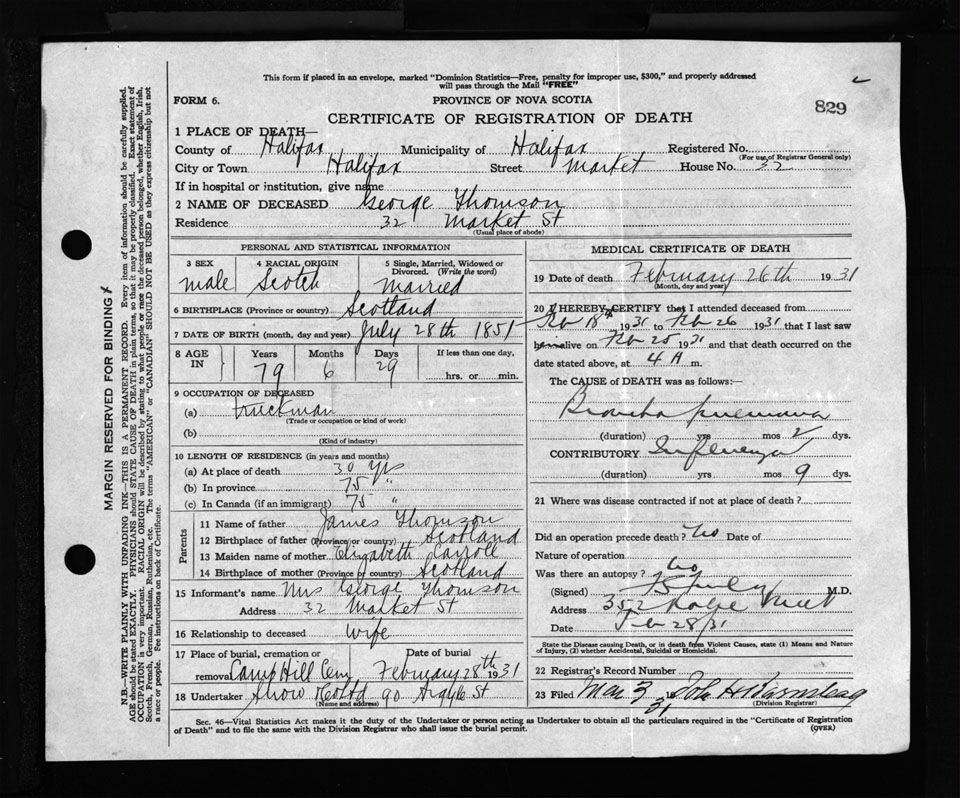 This form if placed in an envelope, marked "Dominion Statistics—Free, penalty for improper use, $300," and properly addressed
will pass through the Mail "FREE"
FORM 6.
PROVINCE OF NOVA SCOTIA
829
CERTIFICATE OF REGISTRATION OF DEATH
1 PLACE OF DEATH—
County of Halifax Municipality of Halifax Registered No.
(For use of Registrar General only)
City or Town Halifax Street Market House No. 32
If in hospital or institution, give name
2 NAME OF DECEASED George Thomson
Residence 32 Market St
(Usual place of abode)
PERSONAL AND STATISTICAL INFORMATION
3 SEX 4 RACIAL ORIGIN 5 Single, Married, Widowed or
Divorced. (Write the word)
male Scotch Married
6 BIRTHPLACE (Province or country) Scotland
7 DATE OF BIRTH (month, day and year) July 28th 1851
8 AGE IN Years Months Days If less than one day,
79 6 29 hrs. or min.
9 OCCUPATION OF DECEASED
(a) truckman
(Trade or occupation or kind of work)
(b)
(Kind of industry)
10 LENGTH OF RESIDENCE (in years and months)
(a) At place of death 30 Yrs
(b) In province 75 "
(c) In Canada (if an immigrant) 75 "
Parents
11 Name of father James Thomson
12 Birthplace of father (Province or country) Scotland
13 Maiden name of mother Elizabeth Carroll
14 Birthplace of mother (Province or country) Scotland
15 Informant's name Mrs George Thomson
Address 32 Market St
16 Relationship to deceased wife
17 Place of burial, cremation or Date of burial
removal Camp Hill Cem February 28th 1931
18 Undertaker Snow & Co Ltd 90 Argyle St
(Name and address)
MEDICAL CERTIFICATE OF DEATH
19 Date of death February 26th 1931
(Month, day and year)
20 I HEREBY CERTIFY that I attended deceased from
Feb 18th 1931 to Feb 26 1931 that I last saw
h alive on Feb 25 1931 and that death occurred on the
date stated above, at 4 A m.
The CAUSE OF DEATH was as follows:—
Broncho pneumonia
(duration) yrs mos 2 dys.
CONTRIBUTORY Influenza
(duration) yrs mos 9 dys.
21 Where was disease contracted if not at place of death?
Did an operation precede death? No Date of
Nature of operation
Was there an autopsy? No
(Signed) M.D.
Address 352 Robie Street
Date Feb 28/31
State the Disease causing Death, or in death from Violent Causes, state (1) Means and Nature
of Injury, (2) whether Accidental, Suicidal or Homicidal.
22 Registrar's Record Number
23 Filed Mar 3 31 John H
(Division Registrar)
Sec. 46—Vital Statistics Act makes it the duty of the Undertaker or person acting as Undertaker to obtain all the particulars required in the "Certificate of Registration
of Death" and to file the same with the Division Registrar who shall issue the burial permit.
(OVER)
MARGIN RESERVED FOR BINDING
N.B.—WRITE PLAINLY WITH UNFADING INK—THIS IS A PERMANENT RECORD. Every item of information should be carefully supplied.
AGE should be stated EXACTLY. PHYSICIANS should STATE CAUSE OF DEATH in plain terms, so that it may be properly classified. Exact statement of
OCCUPATION is very important. RACIAL ORIGIN will be described by stating to what people or race the deceased person belonged, whether English, Irish,
Scotch, French, German, Russian, Ruthenian, etc. The terms "AMERICAN" or "CANADIAN" SHOULD NOT BE USED as they express citizenship but not
a race or people. See instructions on back of Certificate.